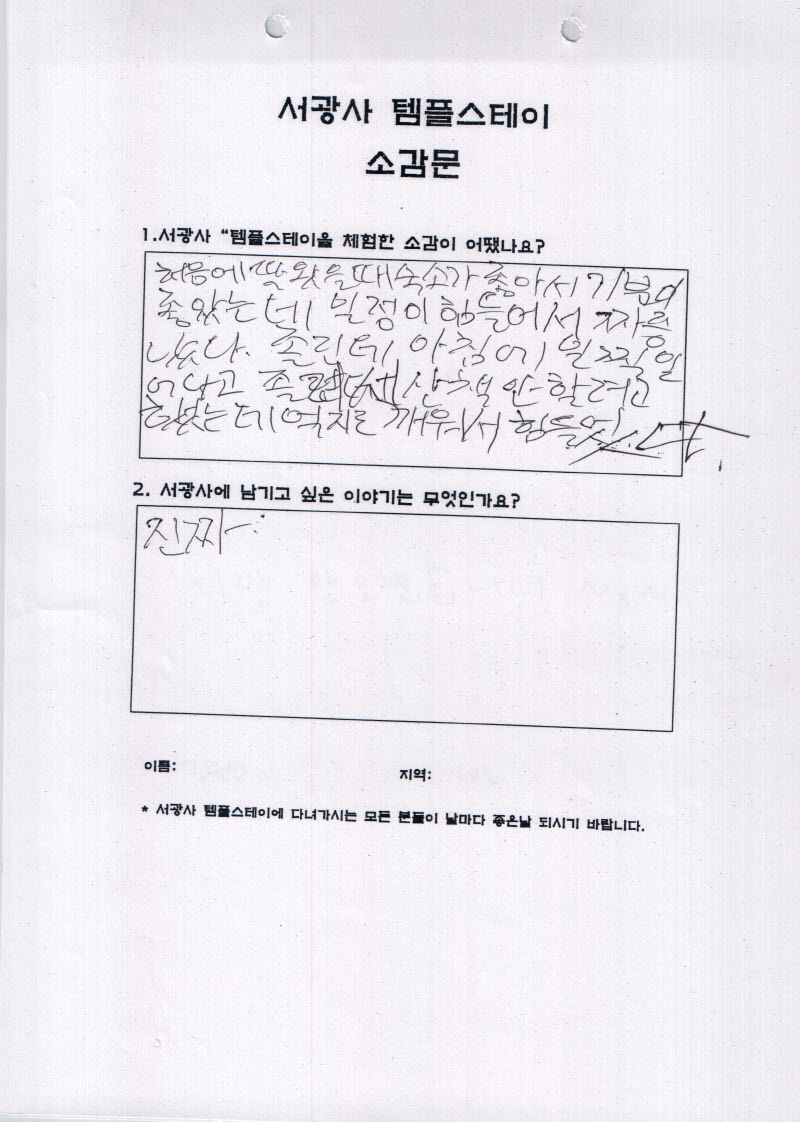 서광사 템플스테이
소감문
1.서광사 "템플스테이을 체험한 소감이 어땠나요?
처음에 딱 왔을때 숙소가 좋아서 기분이
좋았는데 일정이 힘들어서 짜증
났다. 졸린데 아침에 일찍 일
어나고 산책 안할려고
했는데 억지로 깨워서 힘들었다.
2. 서광사에 남기고 싶은 이야기는 무엇인가요?
진짜
이름:
지역:
* 서광사 템플스테이에 다녀가시는 모든 분들이 날마다 좋은날 되시기 바랍니다.